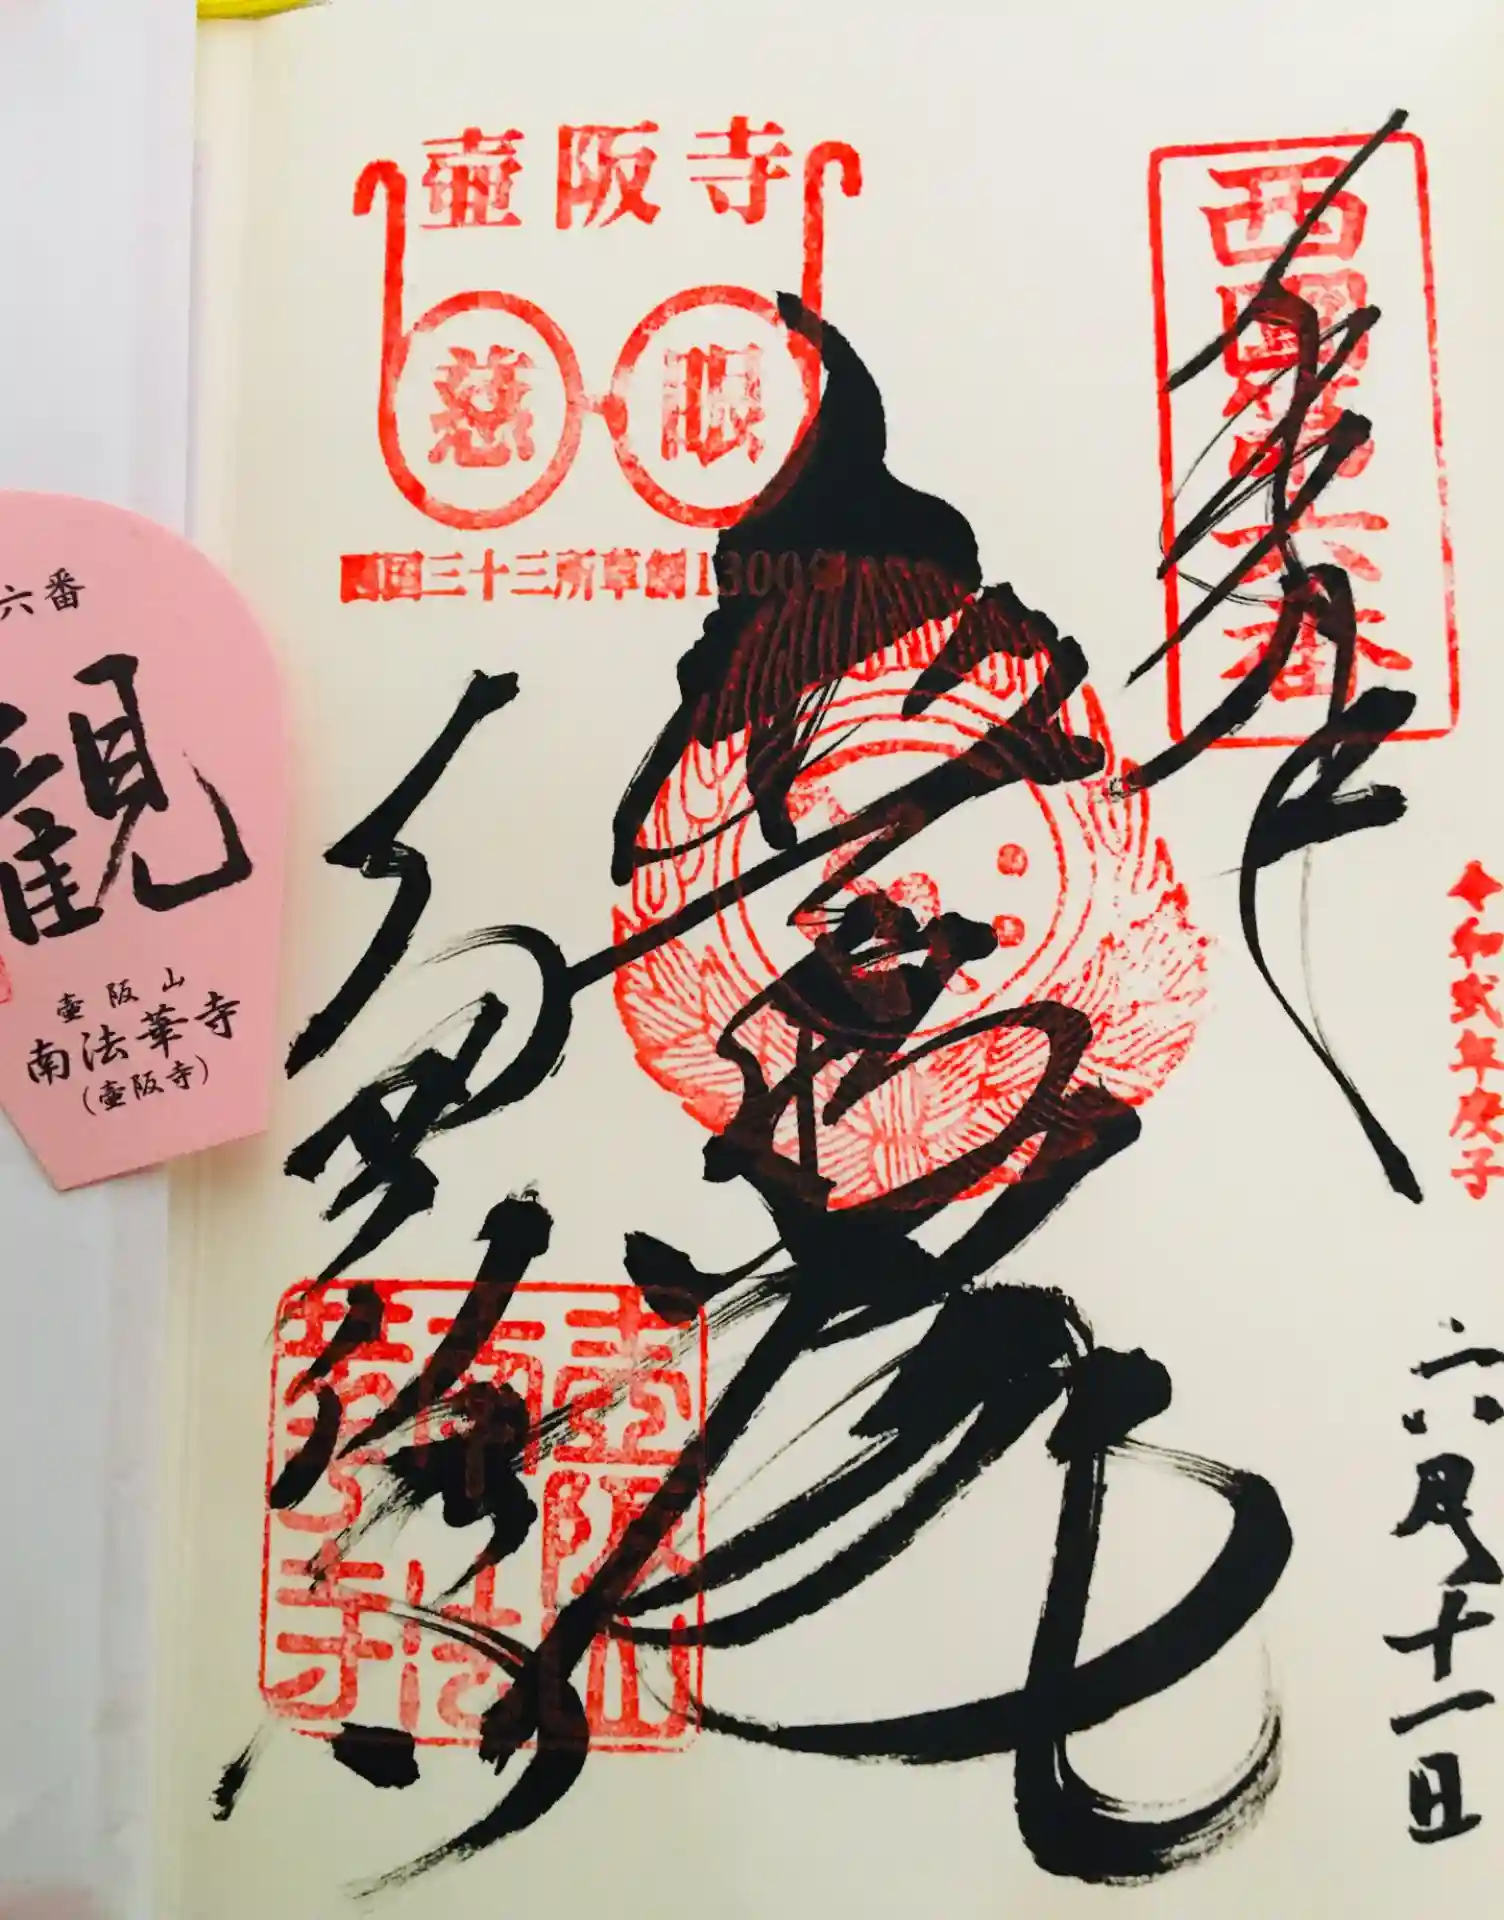 壺阪寺
慈眼
西国三十三所草創1300年
西國第六番
奉拝
令和弐年庚子
六月十一日
普照殿
壺阪山
南法
華寺
六番
観
壺阪山
南法華寺
(壺阪寺)